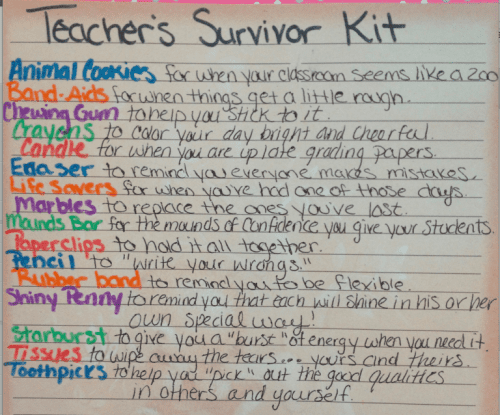 Teacher's Survivor Kit
Animal Cookies for when your classroom seems like a zoo
Band-Aids for when things get a little rough.
Chewing Gum to help you "stick to it.
Crayons to color your day bright and cheerful.
Candle for when you are up late grading papers.
Eraser to remind you everyone makes mistakes.
Life Savers for when you've had one of those days.
Marbles to replace the ones you've lost.
Mounds Bar for the mounds of confidence you give your students.
Paperclips to hold it all together.
Pencil to "write your wrongs."
Rubber band to remind you to be flexible.
Shiny Penny to remind you that each will shine in his or her
own special way!
Starburst to give you a "burst" of energy when you need it.
Tissues to wipe away the tears... yours and theirs.
Toothpicks to help you "pick" out the good qualities
in others and yourself.